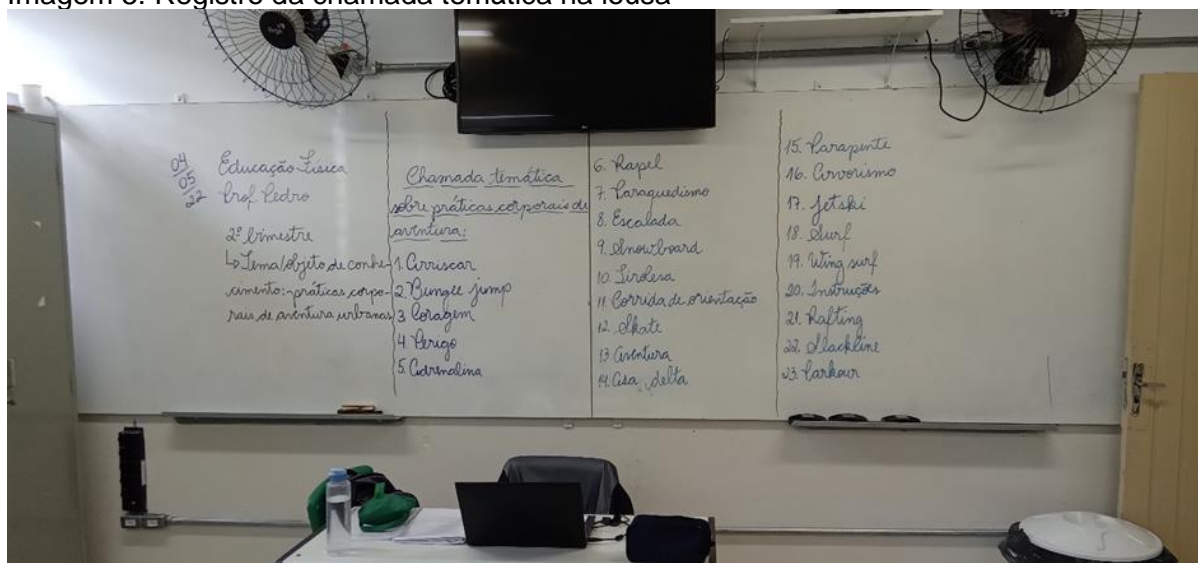 Imagem 3. Registro da chamada temática na lousa
04
05
22
Educação Física
Prof. Pedro
2º bimestre
↳ Tema/objeto de conhe-
cimento: práticas corpo-
rais de aventura urbanas
Chamada temática
sobre práticas corporais de
aventura:
1. Arriscar
2. Bungee jump
3 Coragem
4. Perigo
5. Adrenalina
6. Rapel
7. Paraquedismo
8. Escalada
9. Snowboard
10. Tirolesa
11. Corrida de orientação
12. Skate
13 Aventura
14. Asa delta
15. Parapente
16. Arvorismo
17. Jetski
18. Surf
19. Wing surf
20. Instruções
21. Rafting
22. Slackline
23. Parkour